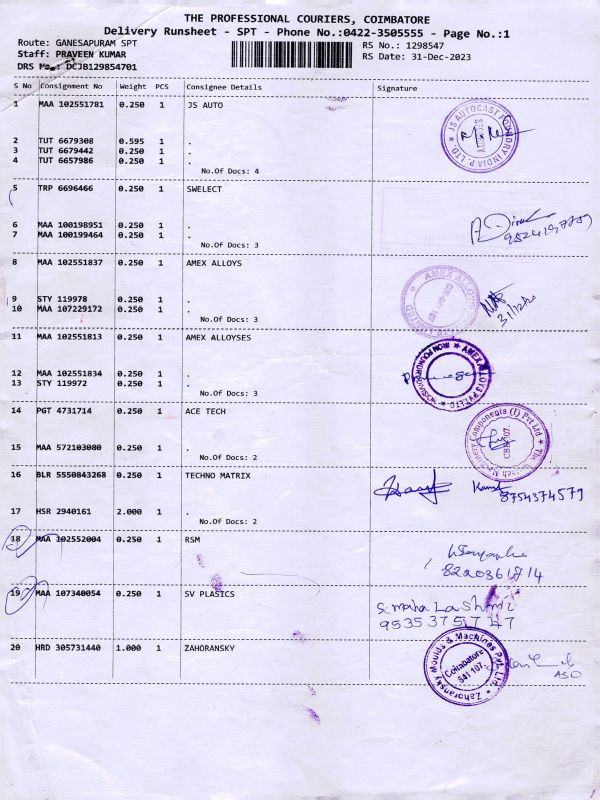 THE PROFESSIONAL COURIERS, COIMBATORE
Delivery Runsheet - SPT - Phone No.:0422-3505555 - Page No.:1
Route: GANESAPURAM SPT
RS No.: 1298547
Staff: PRAVEEN KUMAR
RS Date: 31-Dec-2023
DRS No.: DCJB129854701
S No Consignment No Weight PCS Consignee Details Signature
1 MAA 102551781 0.250 1 JS AUTO
JS AUTOCAST FOUNDRY INDIA P. LTD. SECURITY
2 TUT 6679308 0.595 1 .
3 TUT 6679442 0.250 1 .
4 TUT 6657986 0.250 1 .
No.Of Docs: 4
5 TRP 6696466 0.250 1 SWELECT
6 MAA 100198951 0.250 1 .
7 MAA 100199464 0.250 1 .
No.Of Docs: 3
8 MAA 102551837 0.250 1 AMEX ALLOYS
AMEX ALLOYS
9 STY 119978 0.250 1 .
10 MAA 107229172 0.250 1 .
No.Of Docs: 3
11 MAA 102551813 0.250 1 AMEX ALLOYSES
AMEX ALLOYS PVT. LTD. IRON FOUNDRY DIVISION
12 MAA 102551834 0.250 1 .
13 STY 119972 0.250 1 .
No.Of Docs: 3
14 PGT 4731714 0.250 1 ACE TECH
Machinery Components (I) Pvt Ltd
15 MAA 572103080 0.250 1 .
No.Of Docs: 2
16 BLR 5550843268 0.250 1 TECHNO MATRIX
8754374579
17 HSR 2940161 2.000 1 .
No.Of Docs: 2
18 MAA 102552004 0.250 1 RSM
19 MAA 107340054 0.250 1 SV PLASTICS
S. maha Lashmi
9535375747
20 HRD 305731440 1.000 1 ZAHORANSKY
Zahoransky Moulds & Machines Pvt. Ltd. Coimbatore 641 107.
ASO